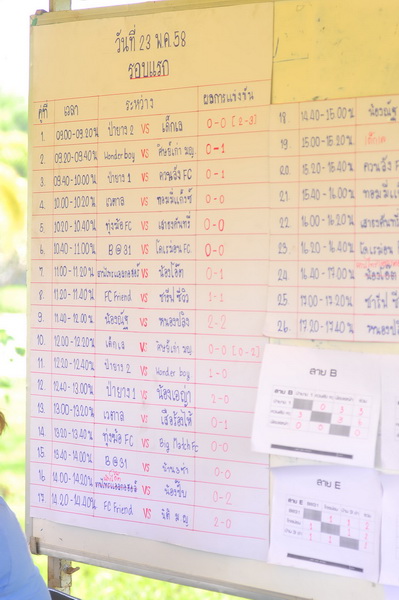 วันที่ 23 พ.ค. 58
รอบแรก
คู่ที่ เวลา ระหว่าง ผลการแข่งขัน
1. 09.00-09.20น ป่ายาง 2 VS เด็กเล 0-0
2. 09.20-09.40น Wonder boy VS ศิษย์เก่า มญ 0-1
3. 09.40-10.00น ป่ายาง 1 VS ควนลัง FC 0-1
4. 10.00-10.20น เวงกล VS ทอมมี่แก๊งซ์ 0-0
5. 10.20-10.40น ทุ่งฟ้อ FC VS 0-0
6. 10.40-11.00น B@31 VS โดเรมอน FC. 0-0
7. 11.00-11.20น VS น้องโอ๊ต 0-1
8. 11.20-11.40น FC Friend VS ชาริฟ ซีวิว 1-1
9. 11.40-12.00น น้องณัฐ VS หนองปลิง 2-2
10. 12.00-12.20น เด็กเล VS ศิษย์เก่า มญ 0-0 [0-1]
11. 12.20-12.40น ป่ายาง 2 VS Wonder boy 1-0
12. 12.40-13.00น ป่ายาง 1 VS 1-0
13. 13.00-13.20น เวงกล VS เสือร้องไห้ 0-1
14. 13.20-13.40น ทุ่งฟ้อ FC VS Big Match Fc 0-0
15. 13.40-14.00น B@31 VS 0-0
16. 14.00-14.20น VS น้องชิบ 0-2
17. 14.20-14.40น FC Friend VS นิติ มญ 2-0
18 14.40-15.00น น้องณัฐ
19. 15.00-15.20น เด็กเล
20. 15.20-15.40น ควนลัง FC
21. 15.40-16.00น ทอมมี่แก๊ง
22. 16.00-16.20น
23. 16.20-16.40น โดเรมอน
24. 16.40-17.00น น้องโอ๊ต
25 17.00-17.20น ชาริฟ ซีวิว
26. 17.20-17.40น หนองปลิง
สาย B
สาย E